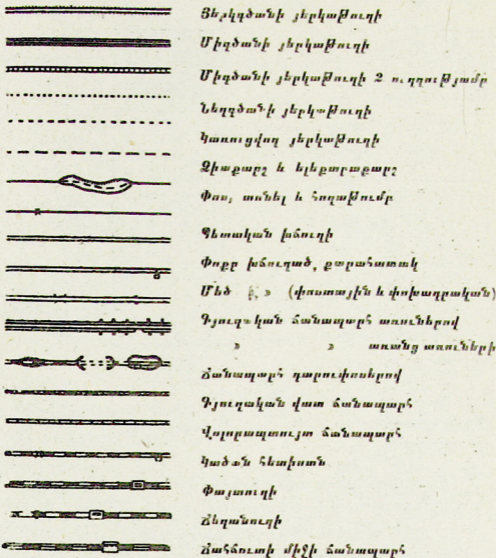 Յերկգծանի յերկաթուղի
Միգծանի յերկաթուղի
Միգծանի յերկաթուղի 2 ուղղությամբ
Նեղգծանի յերկաթուղի
Կառուցվող յերկաթուղի
Ձիաքարշ և ելեքտրաքարշ
Փոս, տունել և հողաթումբ
Պետական խճուղի
Փոքր խճուղած, քարահատակ
Մեծ » (փոստային և փոխադրական)
Գյուղական ճանապարհ առուներով
» » առանց առուների
Ճանապարհ դարուփոսերով
Գյուղական վատ ճանապարհ
Վոլորապտույտ ճանապարհ
Կածան հետիոտն
Փայտուղի
Ճեղանուղի
Ճահճուտի միջի ճանապարհ